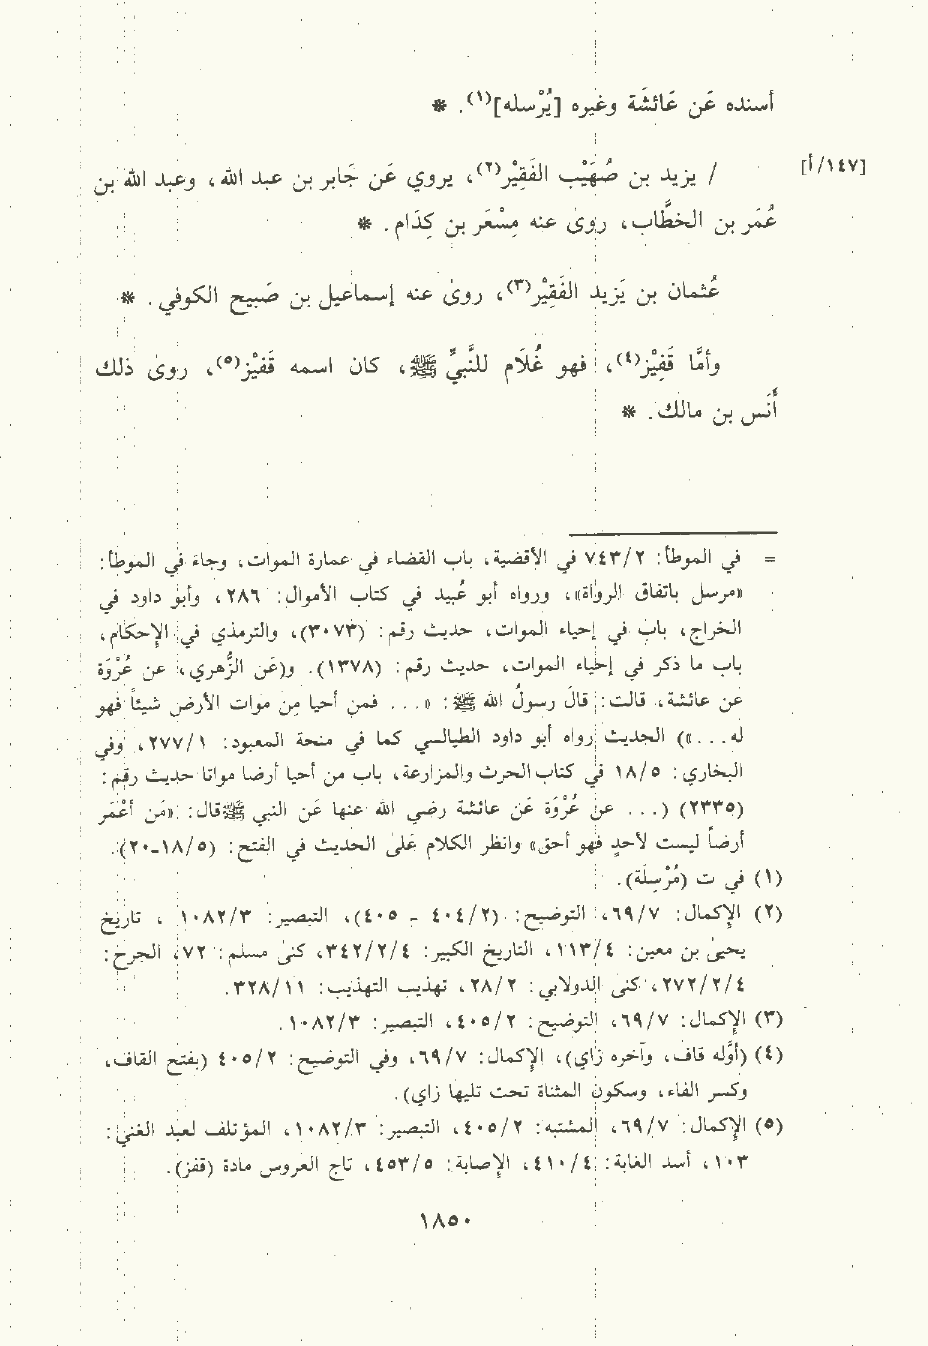 أسنده عَن عَائشَة وغيره [يُرْسله](١). *
[١٤٧/أ]
/ يزيد بن صُهَيْب الفَقِيْر(٢)، يروي عَن جَابر بن عبد الله، وعبد الله بن
عُمَر بن الخطَّاب، روىٰ عنه مِسْعَر بن كِدَام. *
عُثمان بن يَزيد الفَقِيْر(٣)، روىٰ عنه إسماعيل بن صَبيح الكوفي. *
وأمَّا قَفِيْز(٤)، فهو غُلَام للنَّبيِّ ﷺ، كان اسمه قَفيْز(٥)، روىٰ ذلك
أَنَس بن مالك. *
= في الموطأ: ٧٤٣/٢ في الأقضية، باب القضاء في عمارة الموات، وجاء في الموطأ:
«مرسل باتفاق الرواة»، ورواه أبو عُبيد في كتاب الأموال: ٢٨٦، وأبو داود في
الخراج، باب في إحياء الموات، حديث رقم: (٣٠٧٣)، والترمذي في الإحكام،
باب ما ذكر في إحياء الموات، حديث رقم: (١٣٧٨). و(عَن الزُّهري، عن عُرْوَة
عن عائشة، قالت: قَال رسولُ الله ﷺ: «... فمن أحيا مِن موات الأرض شيئاً فهو
له...») الحديث رواه أبو داود الطيالسي كما في منحة المعبود: ٢٧٧/١، وفي
البخاري: ١٨/٥ في كتاب الحرث والمزارعة، باب من أحيا أرضا مواتا حديث رقم:
(٢٣٣٥) (... عن عُرْوَة عَن عائشة رضي الله عنها عَن النبي ﷺ قال: «مَن أعْمَر
أرضاً ليست لأحدٍ فهو أحق» وانظر الكلام عَلى الحديث في الفتح: (١٨/٥-٢٠).
(١) في ت (مُرْسِلَة).
(٢) الإكمال: ٦٩/٧، التوضيح: (٤٠٤/٢ - ٤٠٥)، التبصير: ١٠٨٢/٣ ، تاريخ
يحيىٰ بن معين: ١١٣/٤، التاريخ الكبير: ٣٤٢/٢/٤، كنىٰ مسلم: ٧٢، الجرح:
٢٧٢/٢/٤، كنى الدولابي: ٢٨/٢، تهذيب التهذيب: ٣٢٨/١١.
(٣) الإكمال: ٦٩/٧، التوضيح: ٤٠٥/٢، التبصير: ١٠٨٢/٣.
(٤) (أوَّله قاف، وآخره زاي)، الإكمال: ٦٩/٧، وفي التوضيح: ٤٠٥/٢ (بفتح القاف،
وكسر الفاء، وسكون المثناة تحت تليها زاي).
(٥) الإكمال: ٦٩/٧، المشتبه: ٤٠٥/٢، التبصير: ١٠٨٢/٣، المؤتلف لعبد الغني:
١٠٣، أسد الغابة: ٤١٠/٤، الإصابة: ٤٥٣/٥، تاج العروس مادة (قفز).
١٨٥٠